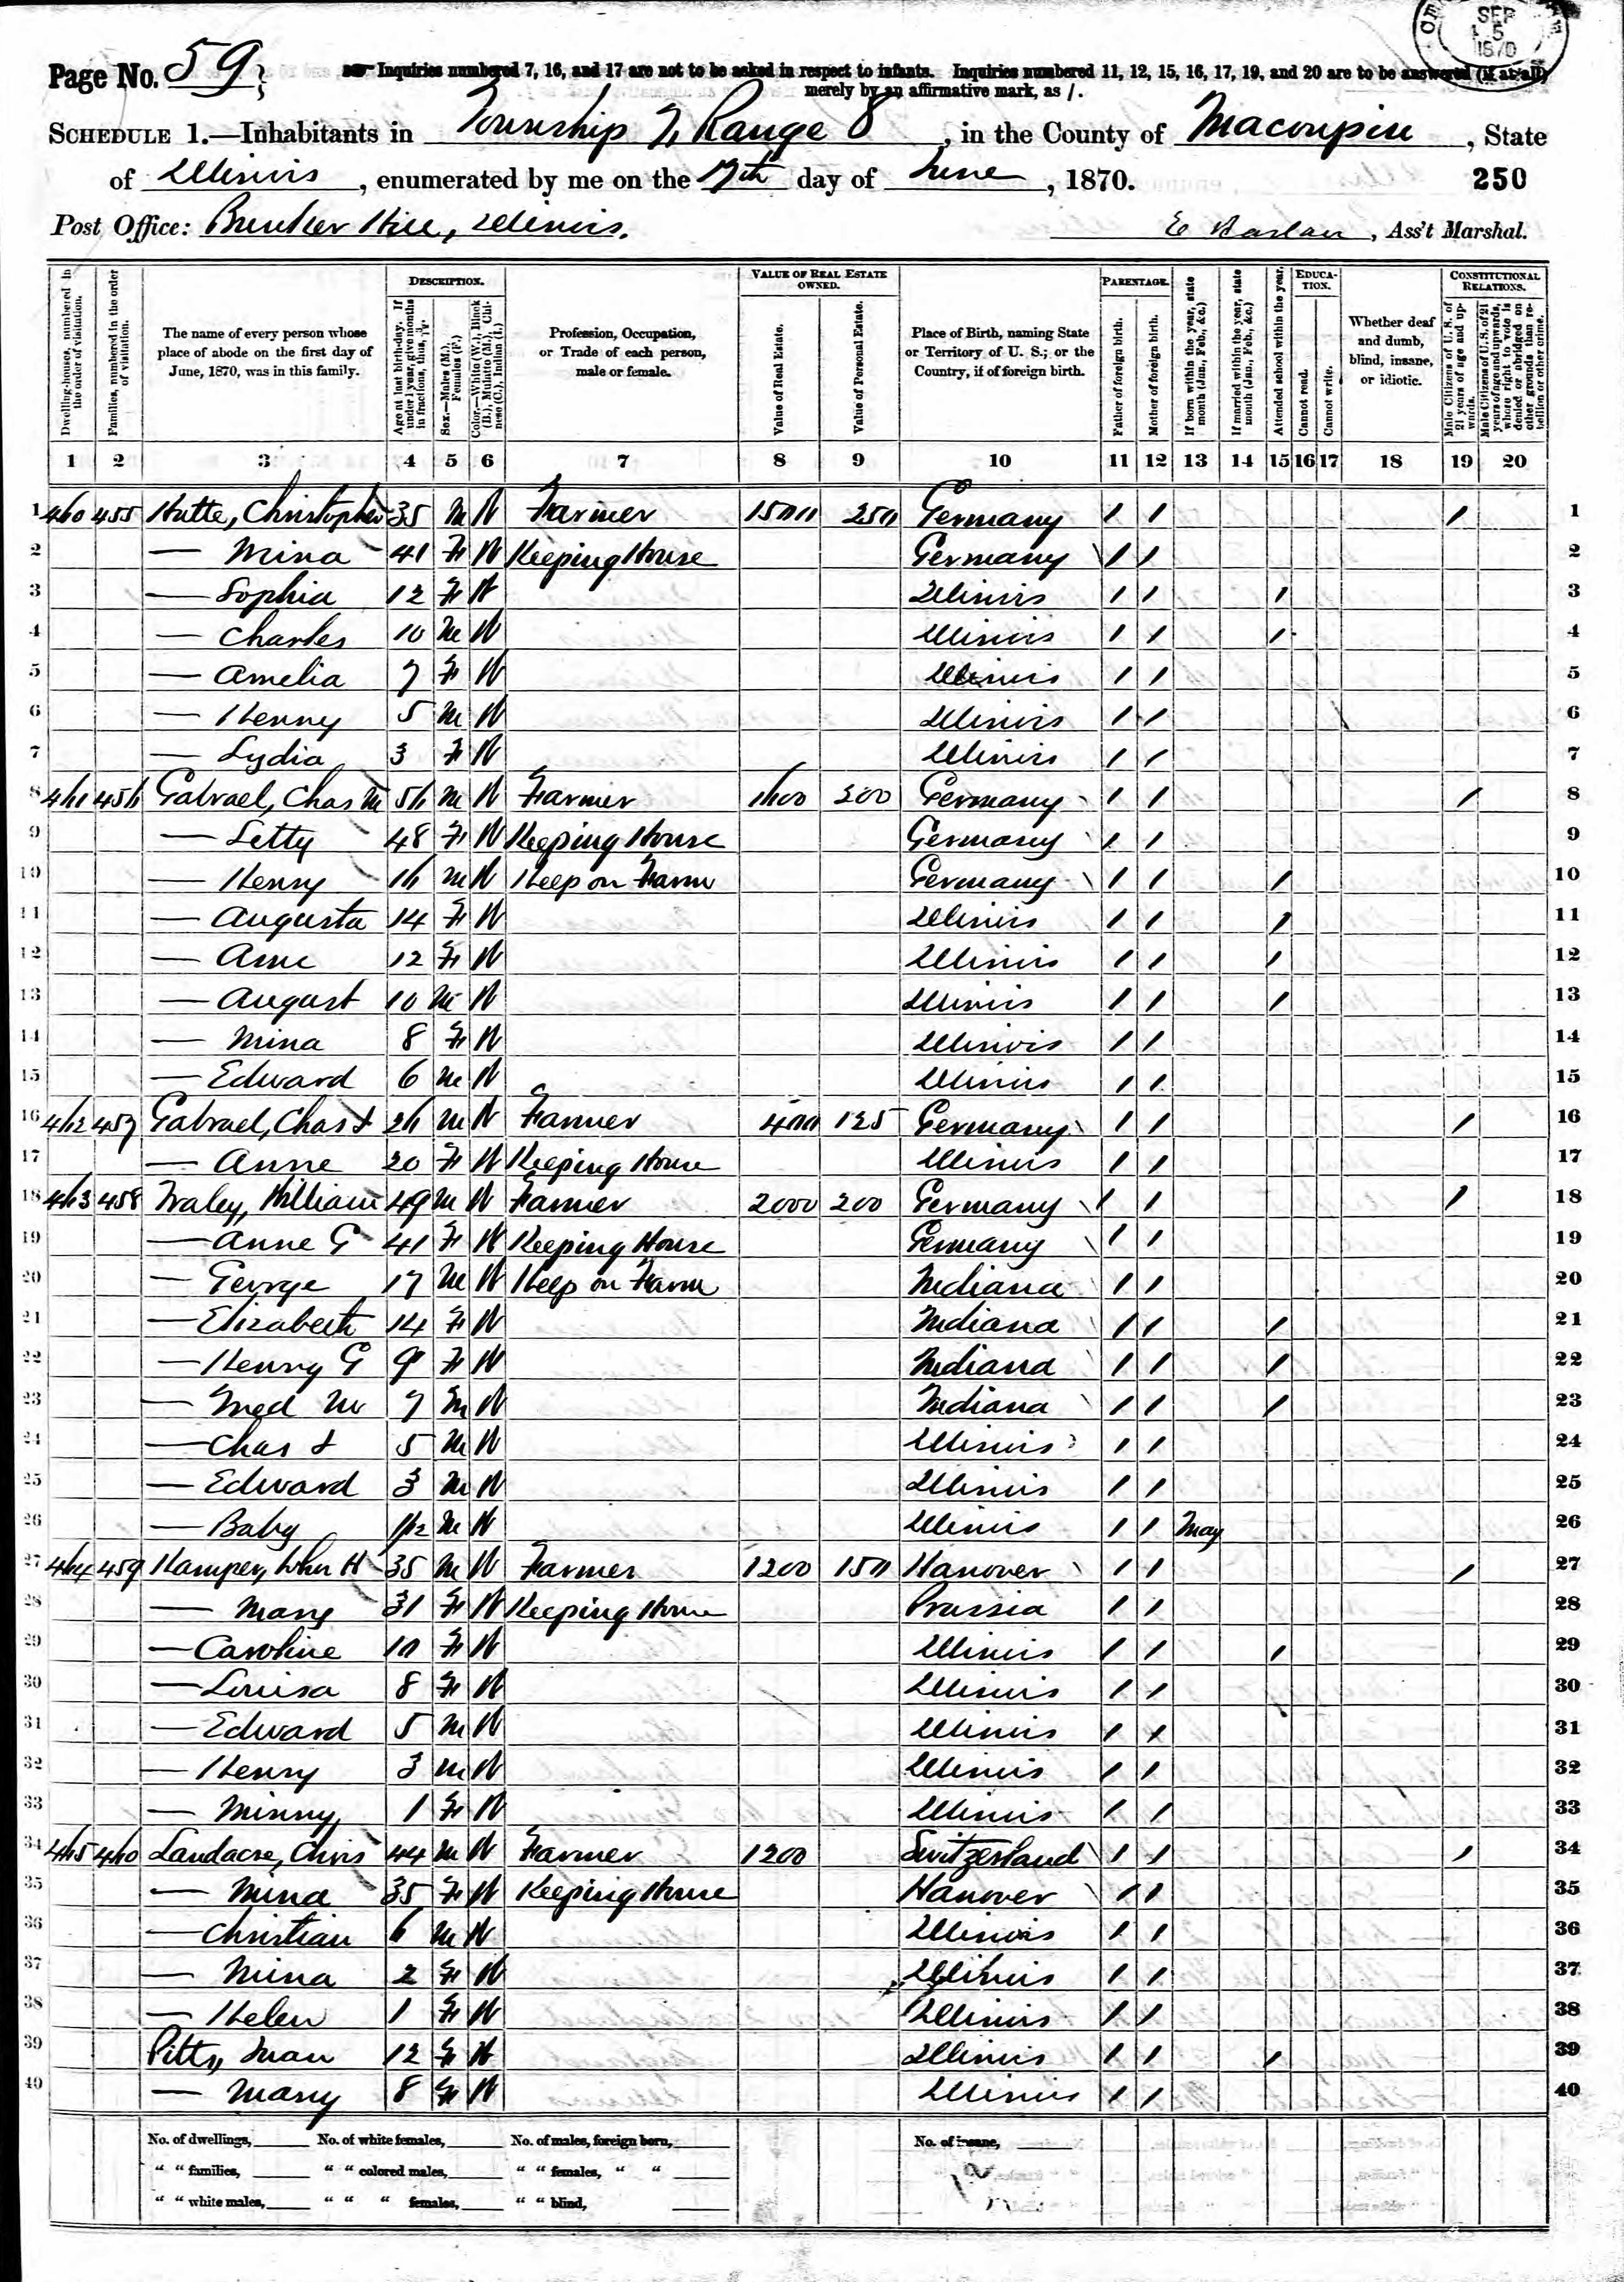 Page No. 59
Inquiries numbered 7, 16, and 17 are not to be asked in respect to infants. Inquiries numbered 11, 12, 15, 16, 17, 19, and 20 are to be answered (if at all)
merely by an affirmative mark, as /.
SEP 5 1870
SCHEDULE 1.—Inhabitants in Township 7, Range 8, in the County of Macoupin, State
of Illinois, enumerated by me on the 17th day of June, 1870. 250
Post Office: Bunker Hill, Illinois. E Harlan, Ass't Marshal.
Dwelling-houses, numbered in the order of visitation.
Families, numbered in the order of visitation.
The name of every person whose place of abode on the first day of June, 1870, was in this family.
DESCRIPTION.
Age at last birth-day. If under 1 year, give months in fractions, thus, 3/12.
Sex.—Males (M.), Females (F.)
Color.—White (W.), Black (B.), Mulatto (M.), Chinese (C.), Indian (I.)
Profession, Occupation, or Trade of each person, male or female.
VALUE OF REAL ESTATE OWNED.
Value of Real Estate.
Value of Personal Estate.
Place of Birth, naming State or Territory of U. S.; or the Country, if of foreign birth.
PARENTAGE.
Father of foreign birth.
Mother of foreign birth.
If born within the year, state month (Jan., Feb., &c.)
If married within the year, state month (Jan., Feb., &c.)
Attended school within the year.
EDUCATION.
Cannot read.
Cannot write.
Whether deaf and dumb, blind, insane, or idiotic.
CONSTITUTIONAL RELATIONS.
Male Citizens of U. S. of 21 years of age and upwards.
Male Citizens of U. S. of 21 years of age and upwards, whose right to vote is denied or abridged on other grounds than rebellion or other crime.
1 2 3 4 5 6 7 8 9 10 11 12 13 14 15 16 17 18 19 20
1 460 455 Hutte, Christopher 35 M W Farmer 1500 250 Germany / / / 1
2 — Mina 41 F W Keeping House Germany / / 2
3 — Sophia 12 F W Illinois / / / 3
4 — Charles 10 M W Illinois / / / 4
5 — Amelia 7 F W Illinois / / 5
6 — Henry 5 M W Illinois / / 6
7 — Lydia 3 F W Illinois / / 7
8 461 456 Gabrael, Chas M 56 M W Farmer 1600 200 Germany / / / 8
9 — Letty 48 F W Keeping House Germany / / 9
10 — Henry 16 M W Help on Farm Germany / / / 10
11 — Augusta 14 F W Illinois / / / 11
12 — Ame 12 F W Illinois / / / 12
13 — August 10 M W Illinois / / / 13
14 — Mina 8 F W Illinois / / 14
15 — Edward 6 M W Illinois / / 15
16 462 457 Gabrael, Chas 26 M W Farmer 400 125 Germany / / / 16
17 — Anne 20 F W Keeping House Illinois / / 17
18 463 458 William 49 M W Farmer 2000 200 Germany / / / 18
19 — Anne G 41 F W Keeping House Germany / / 19
20 — George 17 M W Help on Farm Indiana / / 20
21 — Elizabeth 14 F W Indiana / / / 21
22 — Henry G 9 F W Indiana / / / 22
23 — Fred W 7 M W Indiana / / / 23
24 — Chas 5 M W Illinois / / 24
25 — Edward 3 M W Illinois / / 25
26 — Baby 1/12 M W Illinois / / May 26
27 464 459 Kamper, John H 35 M W Farmer 1200 150 Hanover / / / 27
28 — Mary 31 F W Keeping House Prussia / / 28
29 — Caroline 10 F W Illinois / / / 29
30 — Louisa 8 F W Illinois / / 30
31 — Edward 5 M W Illinois / / 31
32 — Henry 3 M W Illinois / / 32
33 — Minny 1 F W Illinois / / 33
34 465 460 Landacre, Chris 44 M W Farmer 1200 Switzerland / / / 34
35 — Mina 35 F W Keeping House Hanover / / 35
36 — Christian 6 M W Illinois / / 36
37 — Mina 2 F W Illinois / / 37
38 — Helen 1 F W Illinois / / 38
39 Pitts, 12 F W Illinois / / / 39
40 — Mary 8 F W Illinois / / 40
No. of dwellings, No. of white females, No. of males, foreign born, No. of insane,
" " families, " " colored males, " " females, " "
" " white males, " " " females, " " blind,